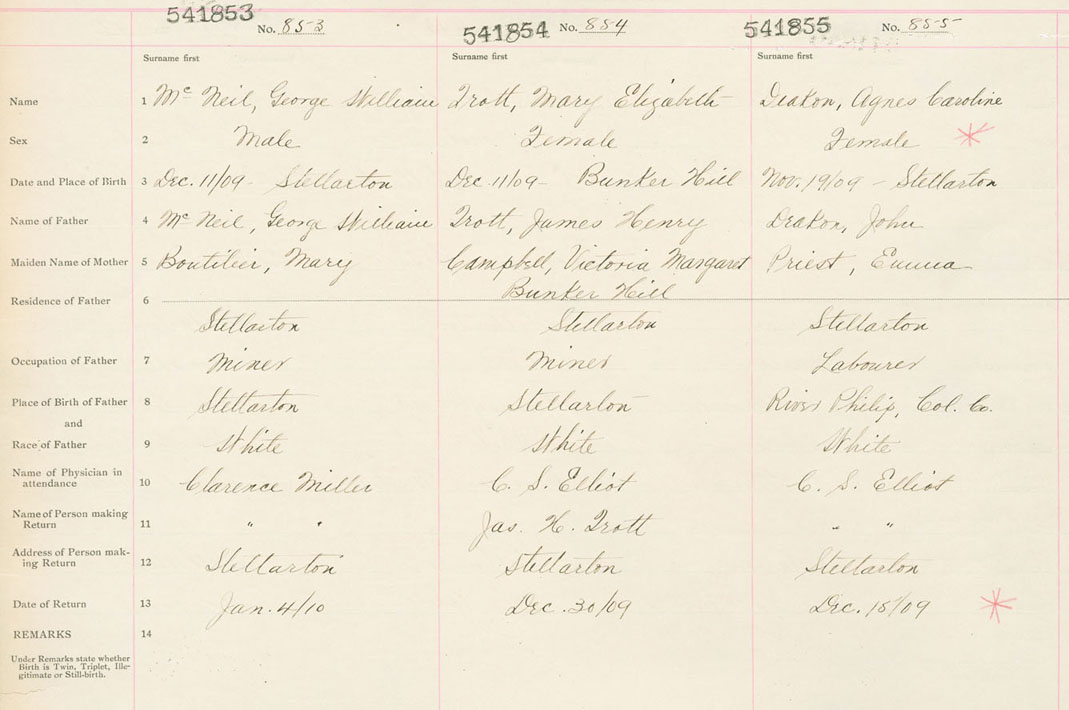 541853 No. 853 541854 No. 854 541855 No. 855
Surname first Surname first Surname first
Name 1 Mc Neil, George William Trott, Mary Elizabeth Deakon, Agnes Caroline
Sex 2 Male Female Female
Date and Place of Birth 3 Dec. 11/09 - Stellarton Dec 11/09 - Bunker Hill Nov. 19/09 - Stellarton
Name of Father 4 Mc Neil, George William Trott, James Henry Deakon, John
Maiden Name of Mother 5 Boutilier, Mary Campbell, Victoria Margaret Priest, Emma
Residence of Father 6 Bunker Hill
Stellarton Stellarton Stellarton
Occupation of Father 7 Miner Miner Labourer
Place of Birth of Father 8 Stellarton Stellarton River Philip, Col. Co.
and
Race of Father 9 White White White
Name of Physician in
attendance 10 Clarence Miller C. S. Elliot C. S. Elliot
Name of Person making
Return 11 " " Jas. H. Trott " "
Address of Person mak-
ing Return 12 Stellarton Stellarton Stellarton
Date of Return 13 Jan. 4/10 Dec. 30/09 Dec. 18/09
REMARKS 14
Under Remarks state whether
Birth is Twin, Triplet, Ille-
gitimate or Still-birth.